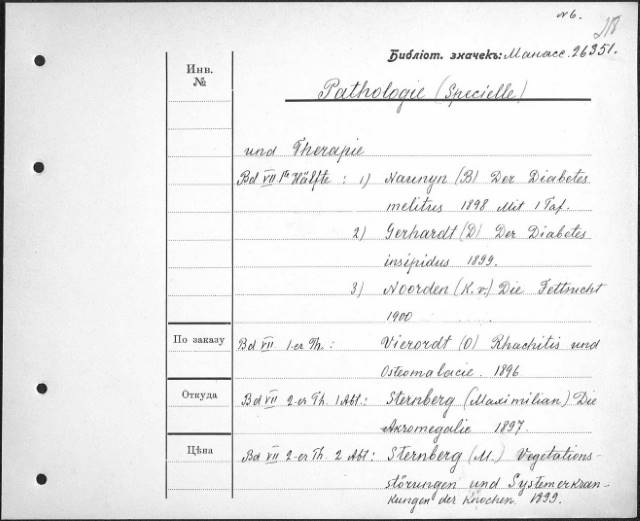 № 6.
218
Библіот. значекъ: Манасс. 26351.
Инв.
№
Pathologie (Specielle)
und Therapie
Bd VII 1te Hälfte: 1) Naunyn (B) Der Diabetes
melitus 1898 Mit 1 Taf.
2) Gerhardt (D) Der Diabetes
insipidus 1899.
3) Noorden (K. v.) Die Fettsucht
1900
По заказу
Bd VII 1-er Th.: Vierordt (O) Rhachitis und
Osteomalacie. 1896
Откуда
Bd VII 2-er Th. 1 Abt.: Sternberg (Maximilian) Die
Akromegalie 1897.
Цѣна
Bd VII 2-er Th. 2 Abt: Sternberg (M.) Vegetations-
störungen und Systemerkran-
kungen der Knochen. 1899.